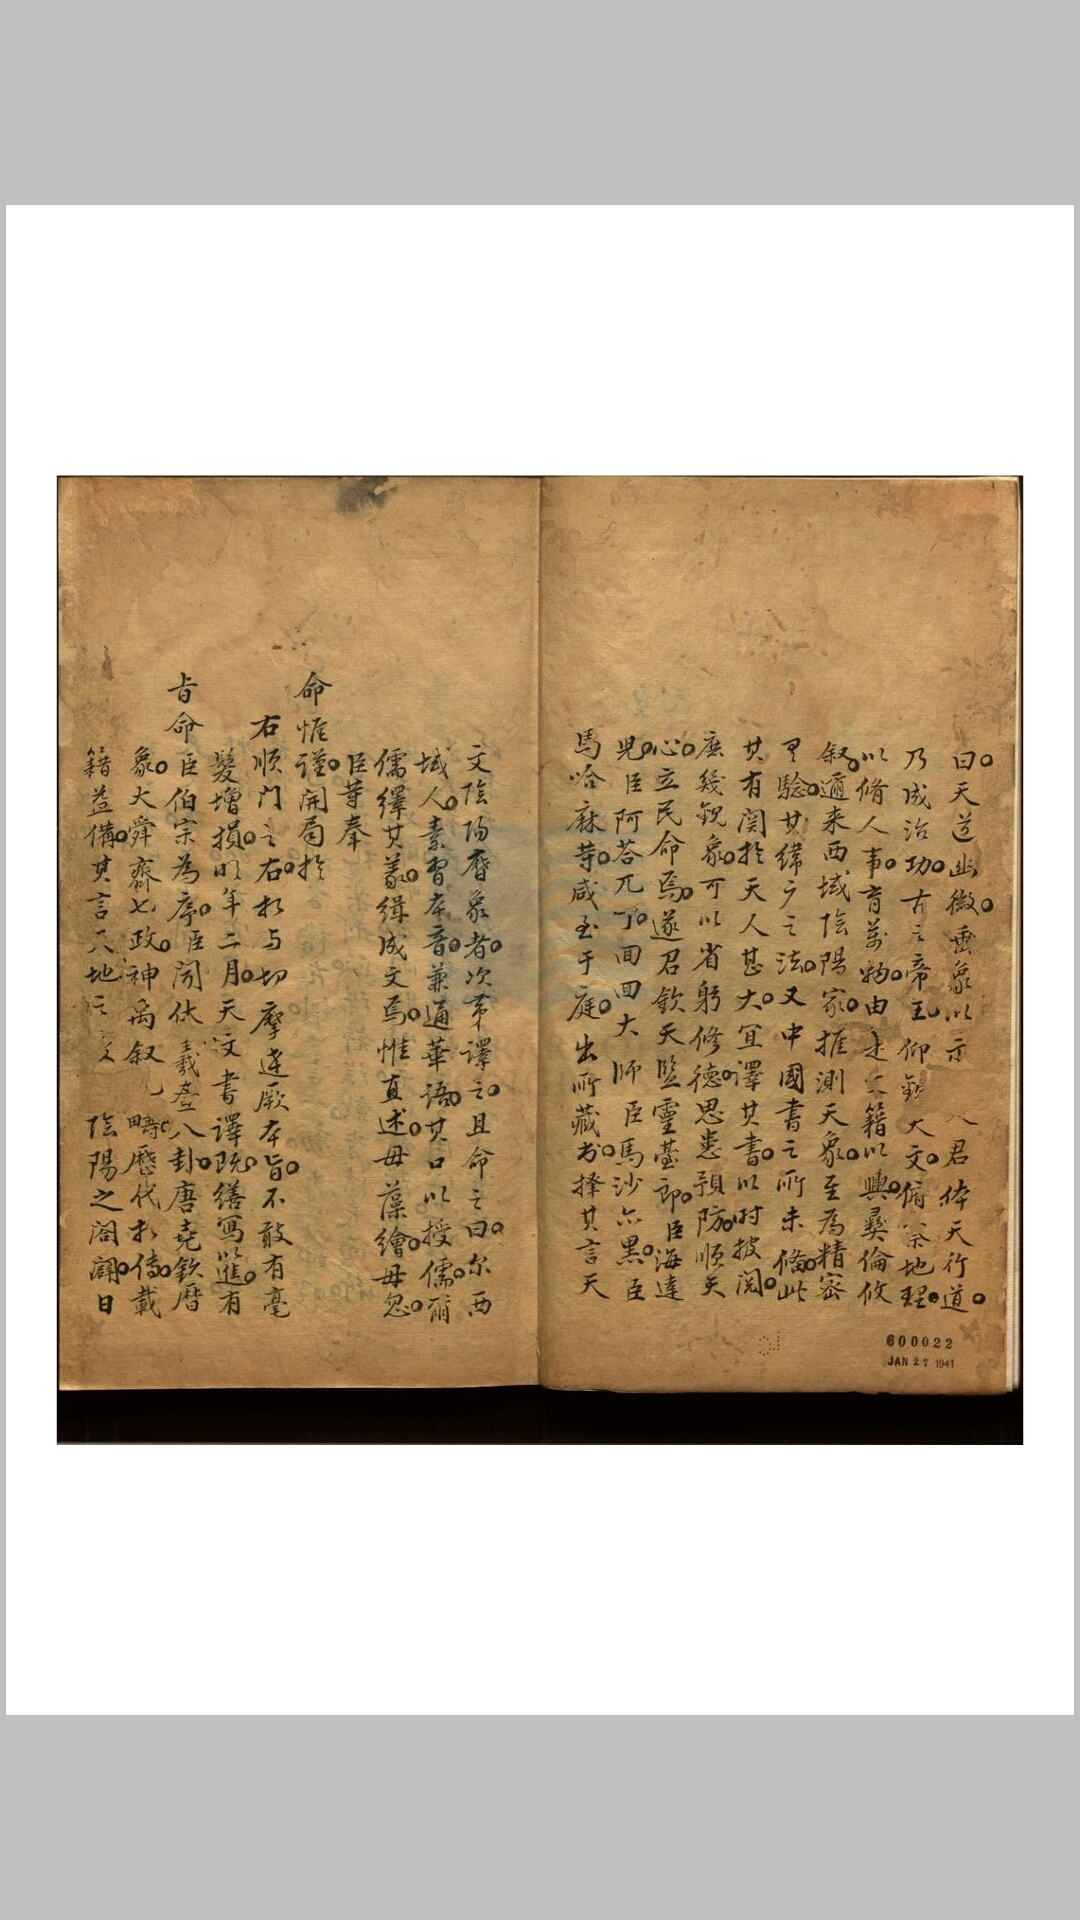 曰天道幽微垂象以示 人君体天行道
乃成治功古之帝王仰 天文俯察地理
以脩人事育萬物由是文籍以興彝倫攸
叙邇来西域陰陽家推測天象至為精密
有驗其緯之法又中國書之所未脩此
其有関扵天人甚大宜譯其書以时披阅
庶幾観象可以省躬修德思患預防順天
心立民命焉遂召欽天監靈臺郎臣海達
児臣阿荅兀丁回回大师臣馬沙亦黒臣
馬哈麻等咸至于庭出所藏书择其言天
文陰陽曆象者次第譯之且命之曰尔西
域人素習本音兼通華語其口以授儒爾
儒繹其義緝成文焉惟直述毋藻繪毋忽
臣等奉
命惟謹開局扵
右順門之右相与切摩達厥本旨不敢有毫
髮增損明年二月天文書譯既繕寫以進有
旨命臣伯宗為序臣聞伏羲畫八卦唐堯欽曆
象大舜齊七政神禹叙 疇歴代相傳載
籍益備其言天地 陰陽之阖闢日
600022
JAN 27 1941